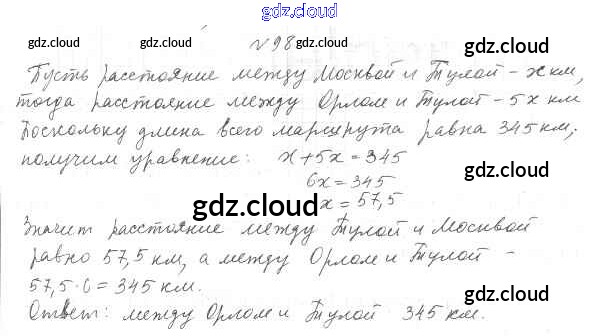 gdz.cloud
gdz.cloud №98 gdz.cloud
Пусть расстояние между Москвой и Тулой - x км,
тогда расстояние между Орлом и Тулой - 5x км
Поскольку длина всего маршрута равна 345 км,
получим уравнение: x+5x=345
6x=345
x=57,5
gdz.cloud
Значит расстояние между Тулой и Москвой
равно 57,5 км, а между Орлом и Тулой -
57,5·6=345 км.
Ответ: между Орлом и Тулой 345 км.
gdz.cloud gdz.cloud
gdz.cloud